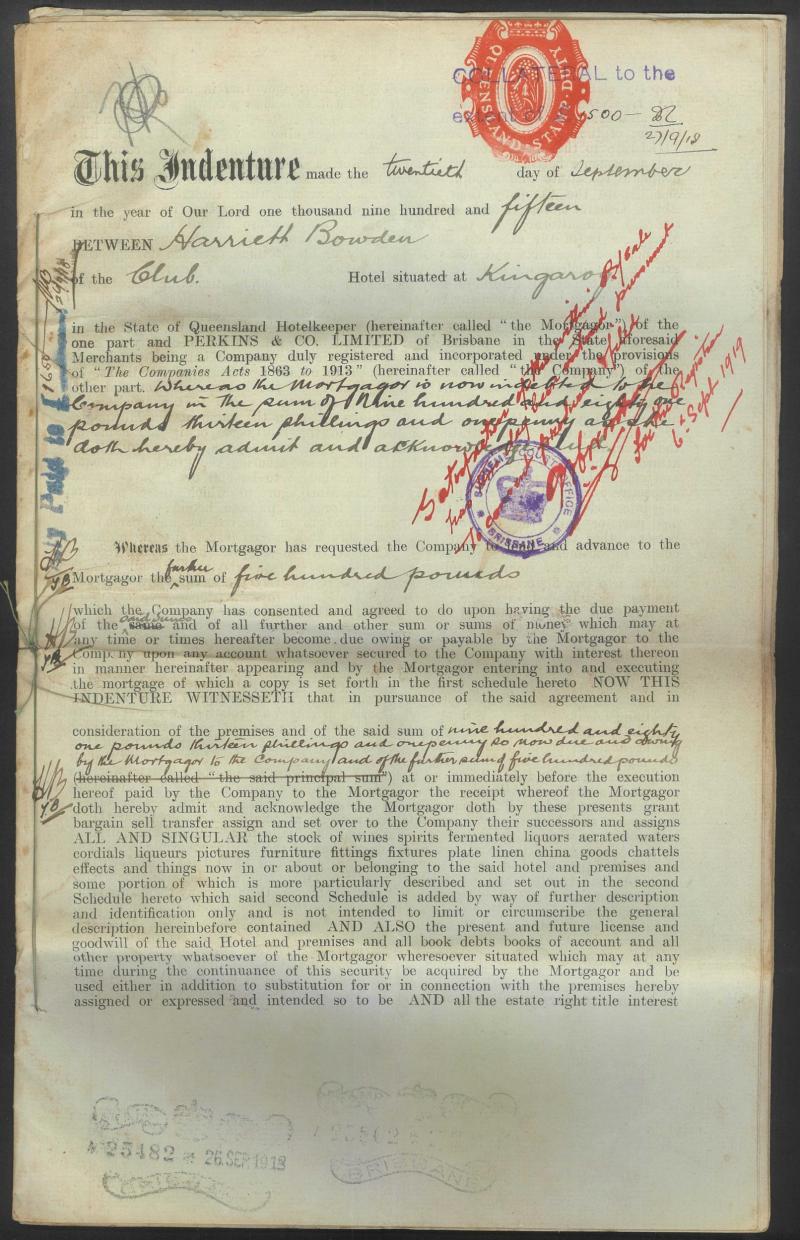 COLLATERAL to the
extent of £1500 -
QUEENSLAND STAMP DUTY
27/9/18
This Indenture made the twentieth day of September
in the year of Our Lord one thousand nine hundred and fifteen
BETWEEN Harrieth Bowden
of the Club. Hotel situated at Kingaroy
in the State of Queensland Hotelkeeper (hereinafter called "the Mortgagor") of the
one part and PERKINS & CO. LIMITED of Brisbane in the State aforesaid
Merchants being a Company duly registered and incorporated under the provisions
of "The Companies Acts 1863 to 1913" (hereinafter called "the Company") of the
other part. Whereas the Mortgagor is now indebted to the
Company in the sum of Nine hundred and eighty one
pounds thirteen shillings and onepenny as she
doth hereby admit and acknowledge
Satisfaction
has
6th Sept 1919
SUPREME COURT OFFICE
BRISBANE
Whereas the Mortgagor has requested the Company to lend and advance to the
Mortgagor the further sum of five hundred pounds
HB
which the Company has consented and agreed to do upon having the due payment
of the same said sums and of all further and other sum or sums of money which may at
any time or times hereafter become due owing or payable by the Mortgagor to the
Company upon any account whatsoever secured to the Company with interest thereon
in manner hereinafter appearing and by the Mortgagor entering into and executing
the mortgage of which a copy is set forth in the first schedule hereto NOW THIS
INDENTURE WITNESSETH that in pursuance of the said agreement and in
HB
consideration of the premises and of the said sum of nine hundred and eighty
one pounds thirteen shillings and onepenny so now due and owing
by the Mortgagor to the Company and of the further sum of five hundred pounds
(hereinafter called "the said principal sum") at or immediately before the execution
HB
hereof paid by the Company to the Mortgagor the receipt whereof the Mortgagor
doth hereby admit and acknowledge the Mortgagor doth by these presents grant
bargain sell transfer assign and set over to the Company their successors and assigns
ALL AND SINGULAR the stock of wines spirits fermented liquors aerated waters
cordials liqueurs pictures furniture fittings fixtures plate linen china goods chattels
effects and things now in or about or belonging to the said hotel and premises and
some portion of which is more particularly described and set out in the second
Schedule hereto which said second Schedule is added by way of further description
and identification only and is not intended to limit or circumscribe the general
description hereinbefore contained AND ALSO the present and future license and
goodwill of the said Hotel and premises and all book debts books of account and all
other property whatsoever of the Mortgagor wheresoever situated which may at any
time during the continuance of this security be acquired by the Mortgagor and be
used either in addition to substitution for or in connection with the premises hereby
assigned or expressed and intended so to be AND all the estate right title interest
25482 26.SEP.1918
BRISBANE